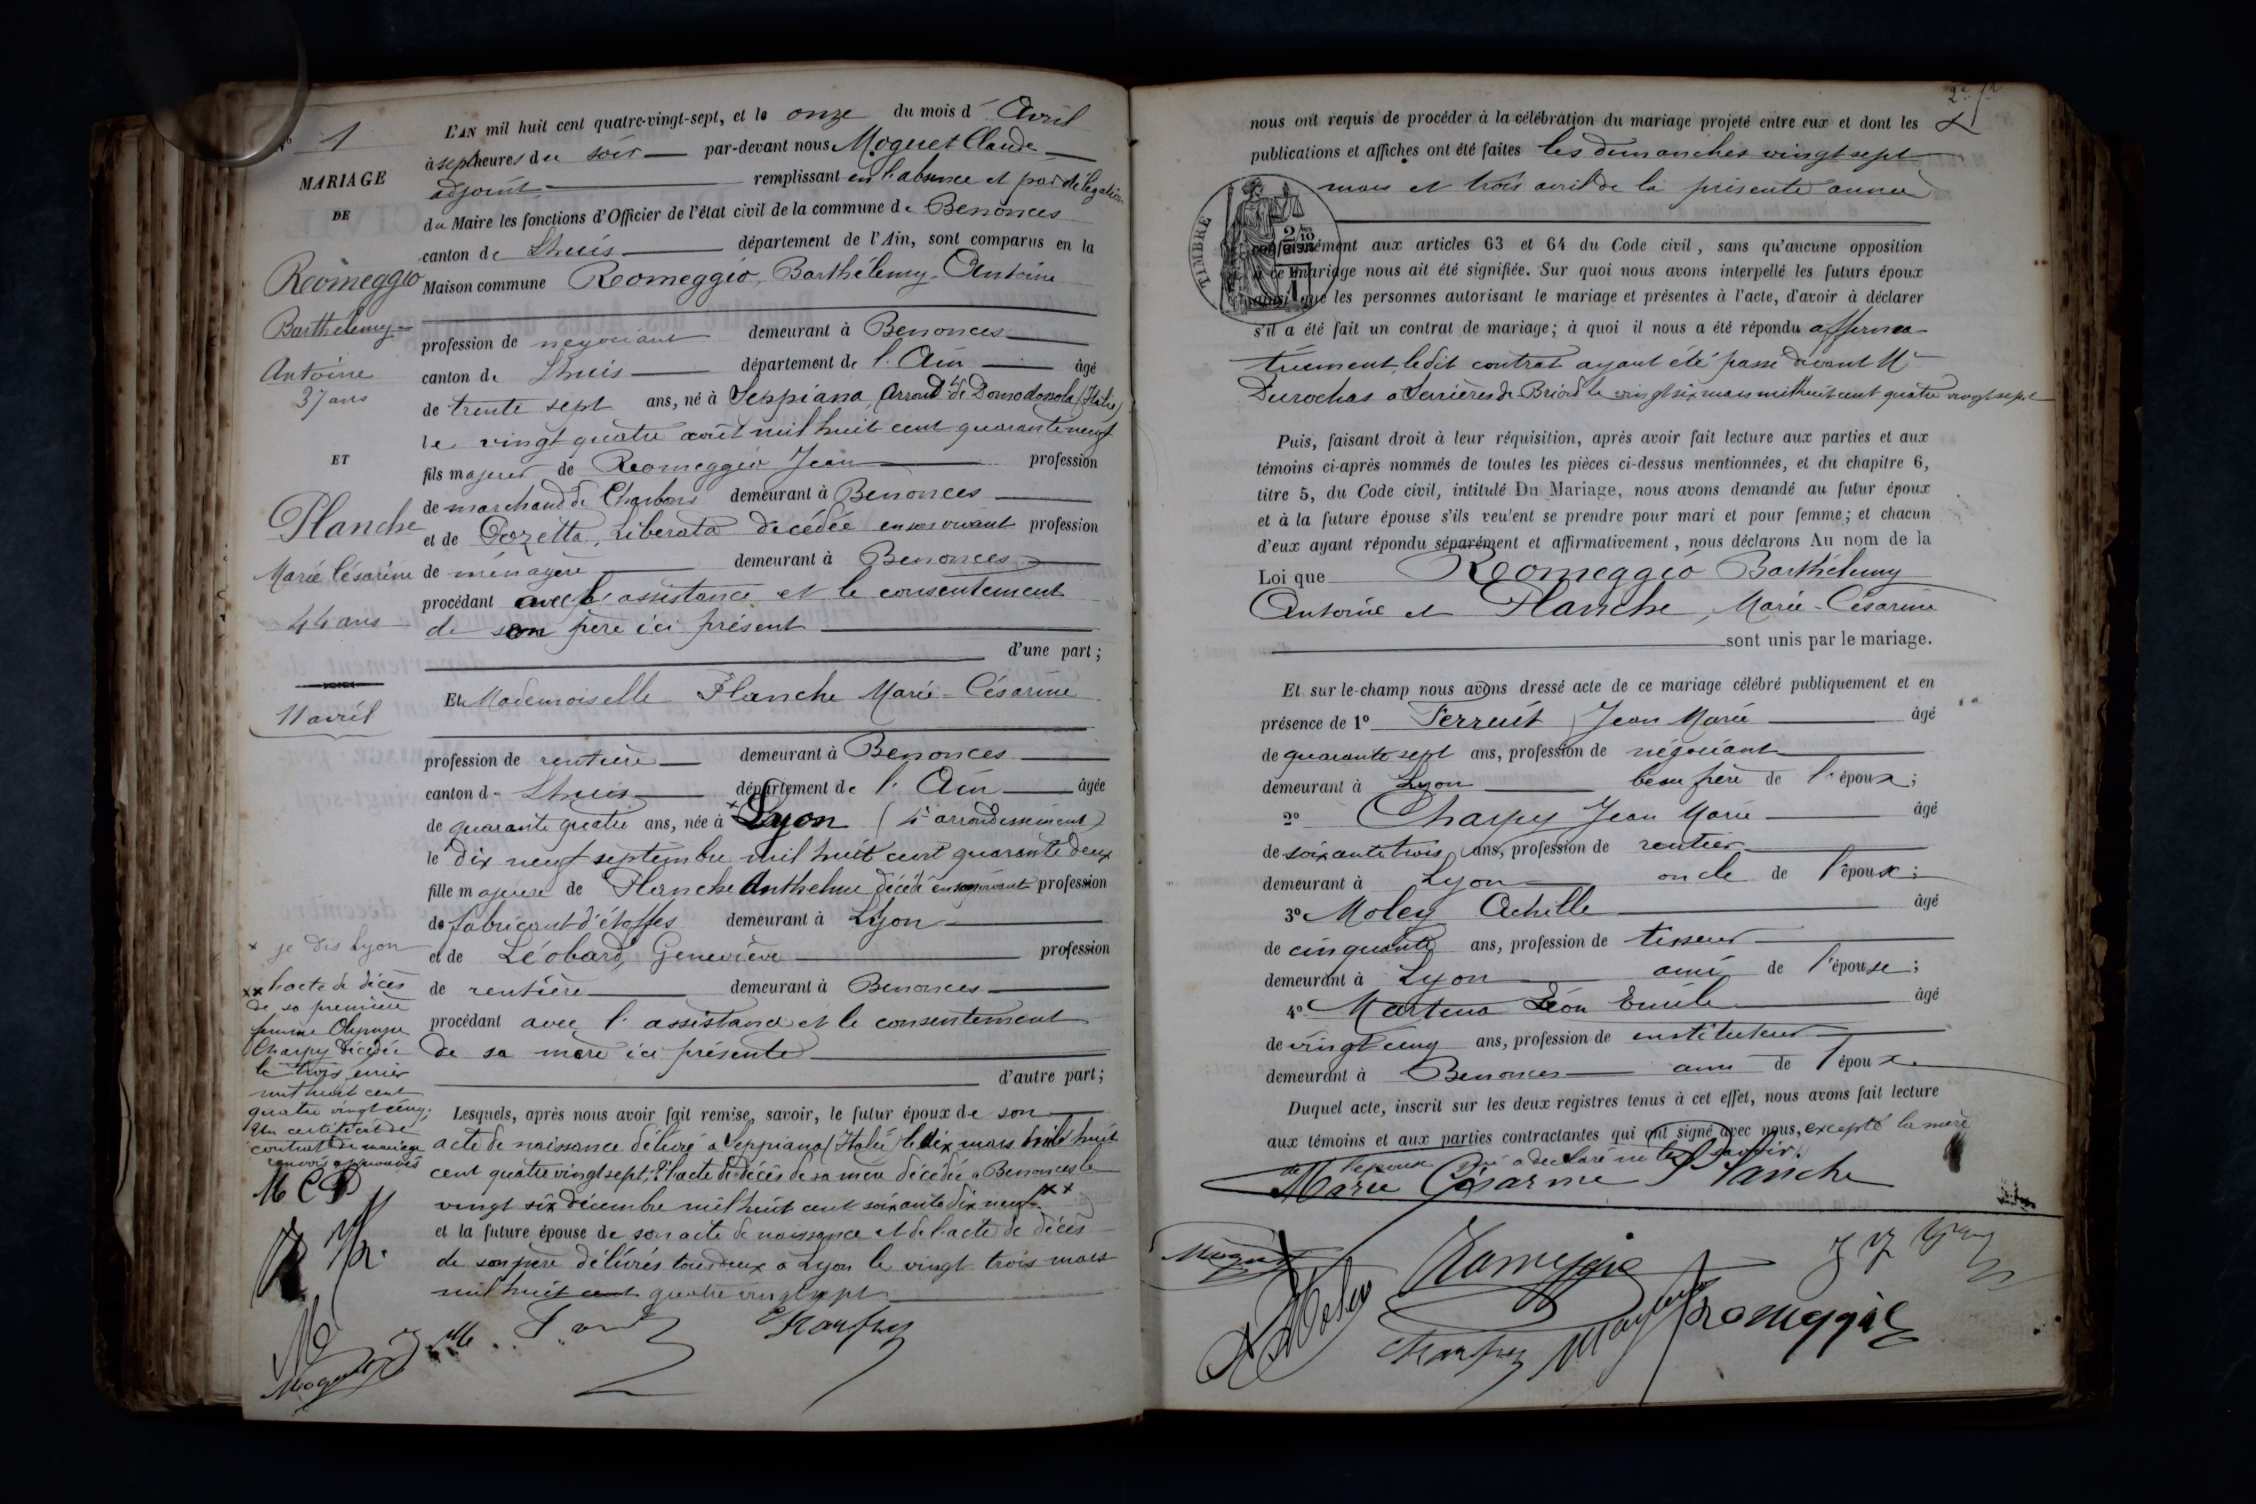 N° 1
MARIAGE
DE
Romeggio
Barthélemy
Antoine
37 ans
ET
Planche
Marie Césarine
44 ans
11 avril
x je dis Lyon
xx l'acte de décès
de sa première
femme Olympe
Charpy décédée
le trois
mil huit cent
quatre vingt cinq;
Un certificat de
contrat de mariage
renvois approuvés
M C P
L'AN mil huit cent quatre-vingt-sept, et le onze du mois d' Avril
à sept heures du soir par-devant nous Moguet Claude
adjoint remplissant en l'absence et par délégation
du Maire les fonctions d'Officier de l'état civil de la commune de Benonces
canton de Lhuis département de l'Ain, sont comparus en la
Maison commune Romeggio, Barthélemy Antoine
profession de négociant demeurant à Benonces
canton de Lhuis département de l'Ain âgé
de trente sept ans, né à Seppiana, Arrond.t de Domodossola (Italie)
le vingt quatre août mil huit cent quarante neuf
fils majeur de Romeggio Jean profession
de marchand de Charbons demeurant à Benonces
et de Liberata décédée en son vivant profession
de ménagère demeurant à Benonces
procédant avec l'assistance et le consentement
de son père ici présent
d'une part;
Et Mademoiselle Planche Marie-Césarine
profession de rentière demeurant à Benonces
canton de Lhuis département de l'Ain âgée
de quarante quatre ans, née à x Lyon (4e arrondissement)
le dix neuf septembre mil huit cent quarante deux
fille majeure de Planche Anthelme décédé en son vivant profession
de fabricant d'étoffes demeurant à Lyon
et de Léobard, Geneviève profession
de rentière demeurant à Benonces
procédant avec l'assistance et le consentement
de sa mère ici présente
d'autre part;
Lesquels, après nous avoir fait remise, savoir, le futur époux de son
acte de naissance délivré à Seppiana (Italie) le dix mars mil huit
cent quatre vingt sept; l'acte de décès de sa mère décédée à Benonces le
vingt six décembre mil huit cent soixante dix neuf xx
et la future épouse de son acte de naissance et de l'acte de décès
de son père délivrés tous deux à Lyon le vingt trois mars
mil huit cent quatre vingt sept
Charpy
Moguet
nous ont requis de procéder à la célébration du mariage projeté entre eux et dont les
publications et affiches ont été faites les dimanches vingt sept
mars et trois avril de la présente année
TIMBRE
conformément aux articles 63 et 64 du Code civil, sans qu'aucune opposition
à ce mariage nous ait été signifiée. Sur quoi nous avons interpellé les futurs époux
ainsi que les personnes autorisant le mariage et présentes à l'acte, d'avoir à déclarer
s'il a été fait un contrat de mariage; à quoi il nous a été répondu affirma
tivement, ledit contrat ayant été passé devant Me
Durochas à Serrières de Briord le vingt six mars mil huit cent quatre vingt sept
Puis, faisant droit à leur réquisition, après avoir fait lecture aux parties et aux
témoins ci-après nommés de toutes les pièces ci-dessus mentionnées, et du chapitre 6,
titre 5, du Code civil, intitulé Du Mariage, nous avons demandé au futur époux
et à la future épouse s'ils veulent se prendre pour mari et pour femme; et chacun
d'eux ayant répondu séparément et affirmativement, nous déclarons Au nom de la
Loi que Romeggio Barthélemy
Antoine et Planche, Marie-Césarine
sont unis par le mariage.
Et sur-le-champ nous avons dressé acte de ce mariage célébré publiquement et en
présence de 1° Ferreuit Jean Marie âgé
de quarante sept ans, profession de négociant
demeurant à Lyon beau frère de l'époux;
2° Charpy Jean Marie âgé
de soixante trois ans, profession de rentier
demeurant à Lyon oncle de l'époux;
3° Moley Achille âgé
de cinquante ans, profession de tisseur
demeurant à Lyon ami de l'épouse;
4° Martena Léon Emile âgé
de vingt cinq ans, profession de instituteur
demeurant à Benonces ami de l'époux
Duquel acte, inscrit sur les deux registres tenus à cet effet, nous avons fait lecture
aux témoins et aux parties contractantes qui ont signé avec nous, excepté la mère
de l'épouse qui a déclaré ne le savoir.
Marie Césarine Planche
Moguet
Romeggio
A Moley
Charpy
Romeggio